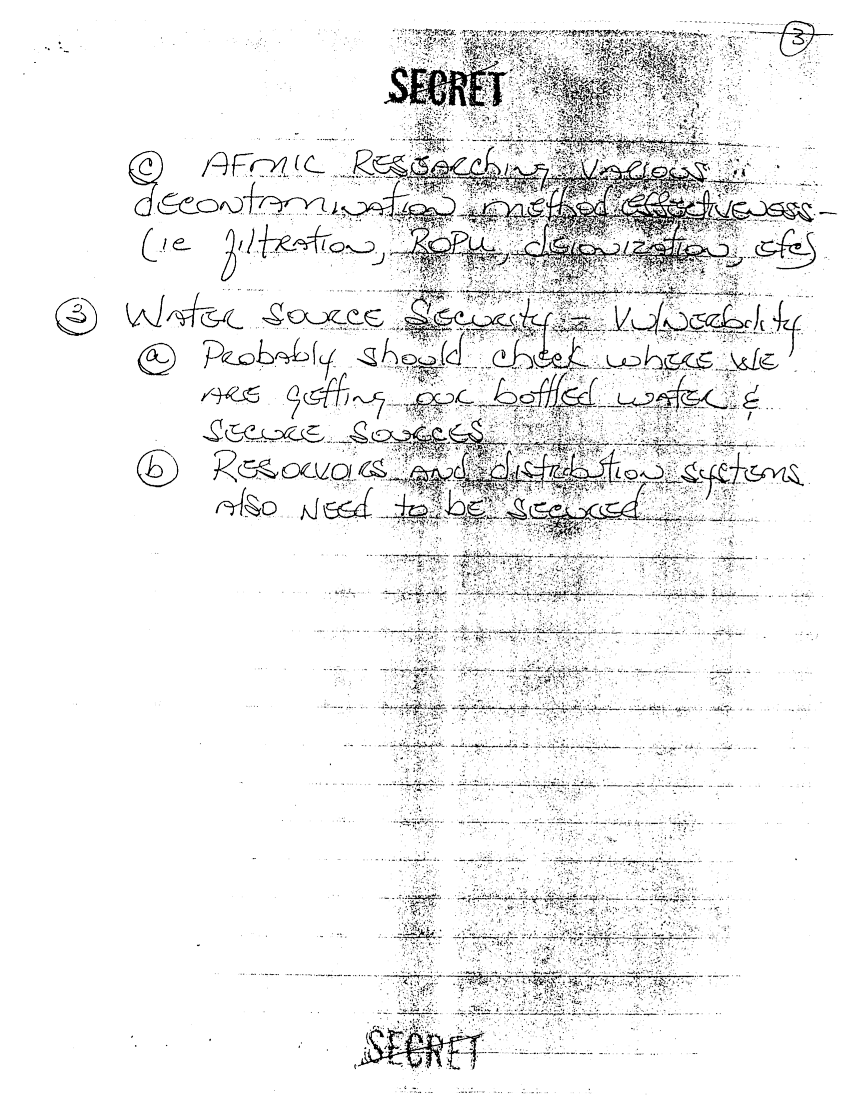 3
SECRET
c AFMIC RESEARCHING VARIOUS
decontamination method effectiveness -
(ie filtration, ROPU, deionization, etc)
3 WATER SOURCE SECURITY - VULNERBILITY
a Probably should check where we
ARE getting our bottled water &
SECURE SOURCES
b RESERVOIRS AND distribution systems
also NEED to be secured
SECRET